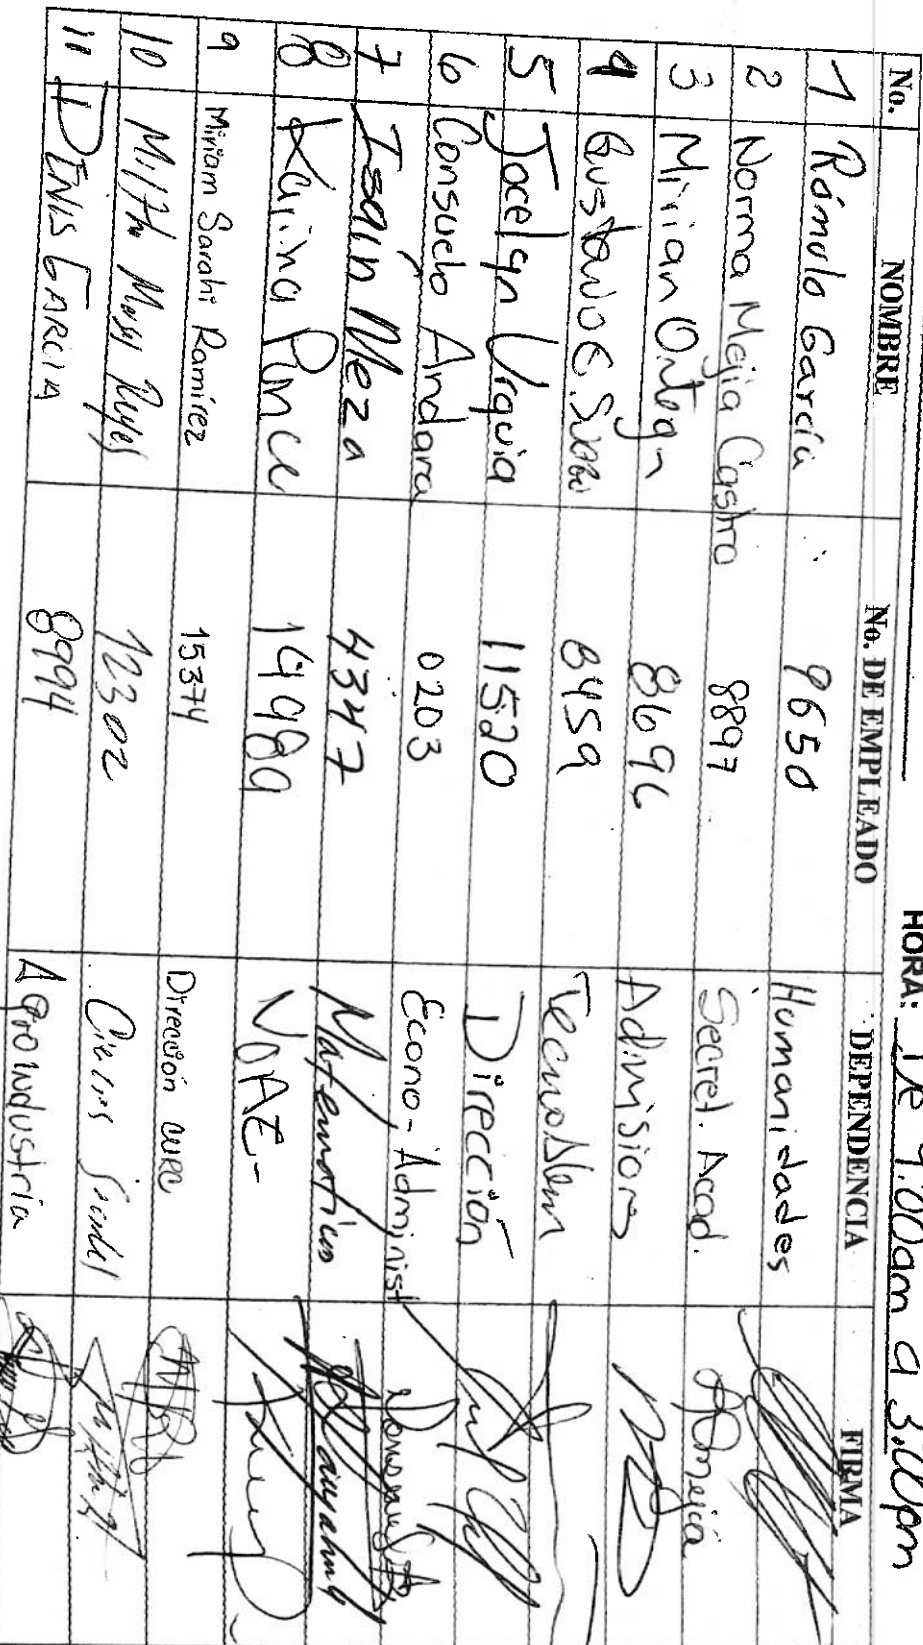 HORA: De 9:00am a 3:00pm
No. NOMBRE No. DE EMPLEADO DEPENDENCIA FIRMA
1 Rómulo García 9650 Humanidades
2 Norma Mejia Castro 8897 Secret. Acad. Mejia
3 Mirian Ortega 8696 Admisiones
4 Gustavo C. 8459
5 Jocelyn Urquia 11520 Dirección
6 Consuelo Andara 0203 Econo-Administ
7 Isaín Meza 4347 Matematicas
8 Karina Ponce 14989 VOAE-
9 Miriam Sarahi Ramirez 15374 Dirección CURC
10 Reyes 12302
11 DENIS GARCIA 8994 Agroindustria